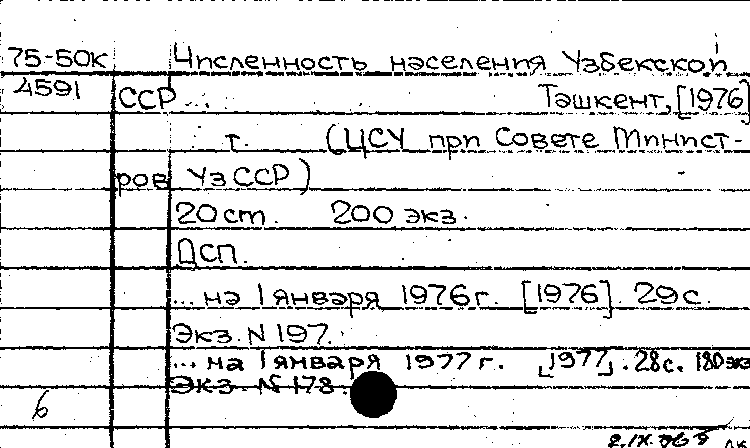 75-50к Численность населения Узбекской
4591 ССР... Ташкент, [1976]
т. (ЦСУ при Совете Минист-
ров УзССР)
20 ст. 200 экз.
ДСП.
... на 1 января 1976 г. [1976]. 29 с.
Экз. N 197.
... на 1 января 1977 г. [1977]. 28 с. 180 экз
Экз. N 178.
6